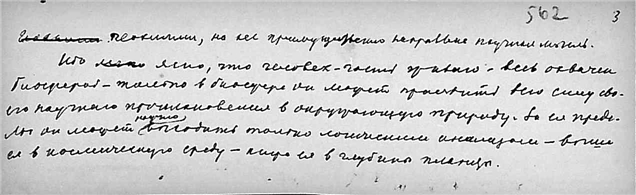 562 3
неожили, но все преимущественно направляе научная мысль.
Ибо ясно, что человек – часть живого – весь охвачен
биосферой – только в биосфере он может проявить всю силу сво-
его научного проникновения в окружающую природу. За ее преде-
лы он может научно выходить только логическим анализом – выше
ее в космическую среду – ниже ее в глубины планеты.